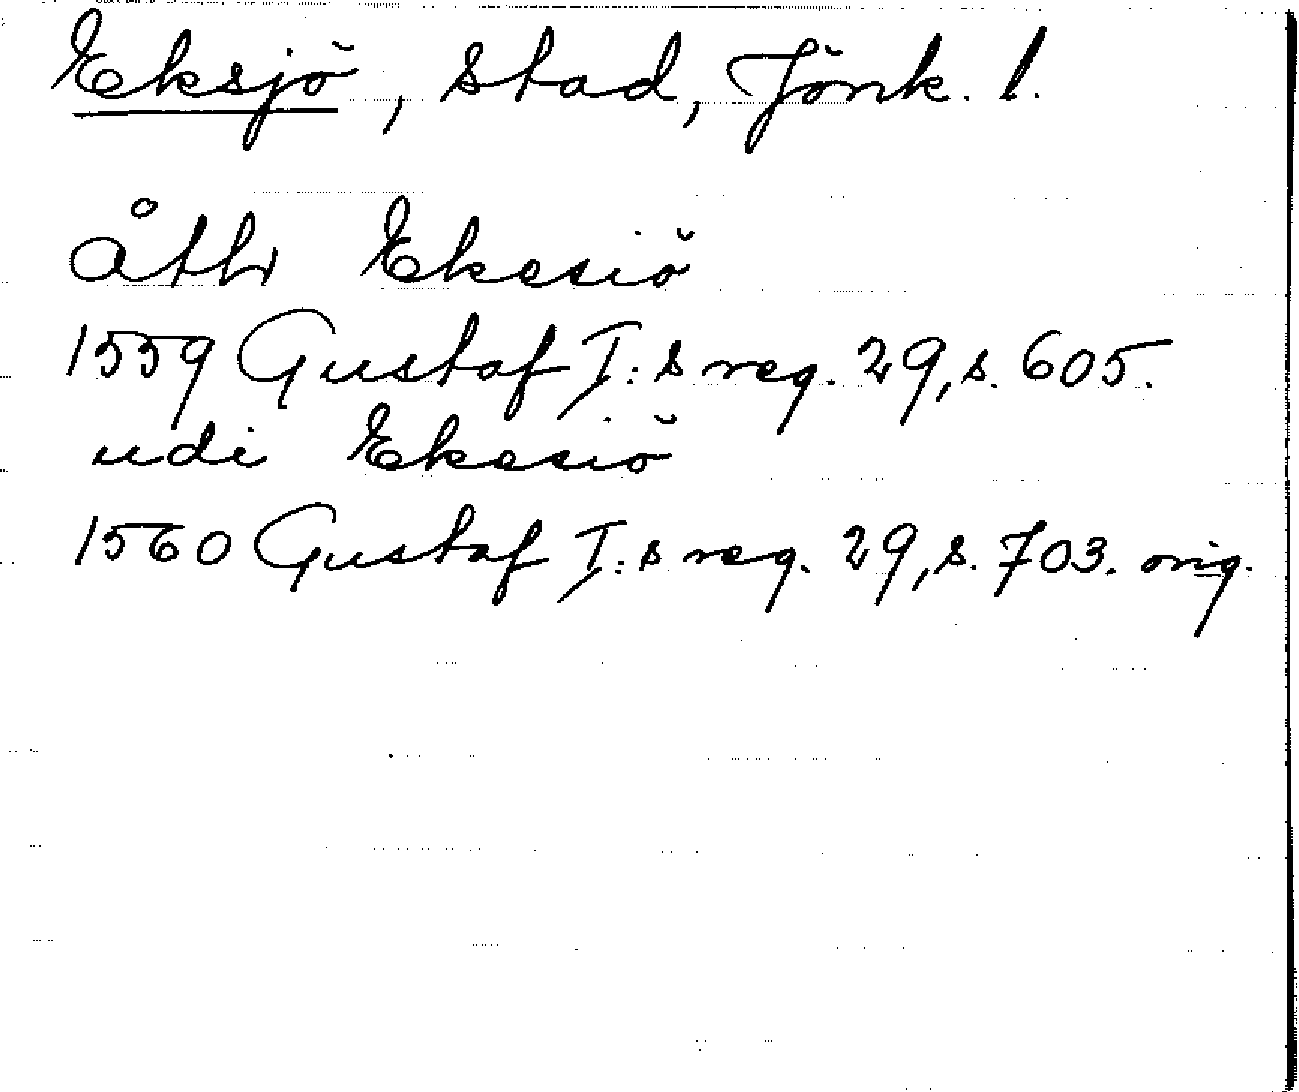 Eksjö, stad, Jönk. l.
åth Ekesiö
1559 Gustaf I:s reg. 29, s. 605.
udi Ekesiö
1560 Gustaf I:s reg. 29, s. 703. orig.